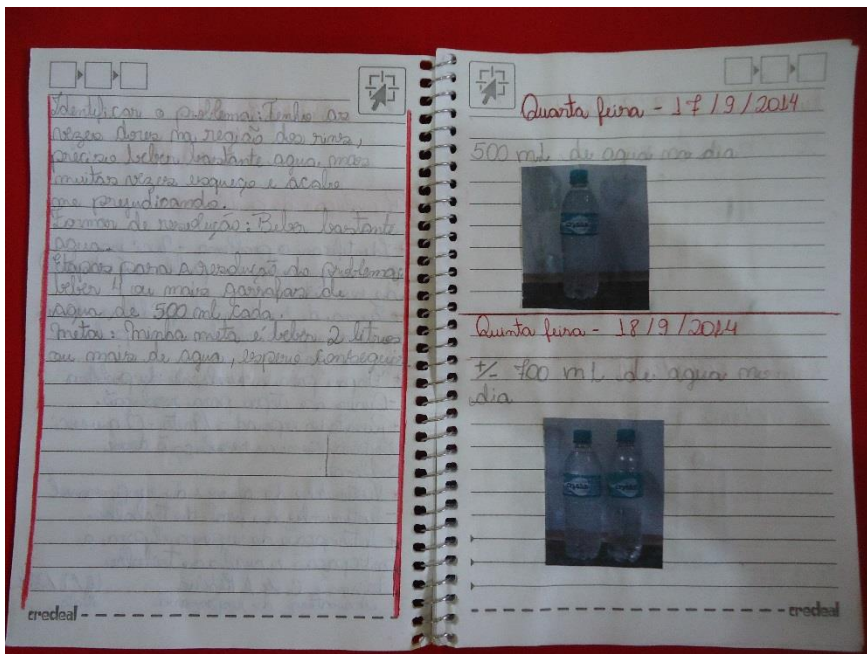 Identificar o problema: Tenho as
vezes dores na região dos rins,
preciso beber bastante agua, mas
muitas vezes esqueço e acabo
me prejudicando.
Formas de resolução: Beber bastante
agua.
Etapas para a resolução do problema:
beber 4 ou mais garrafas de
agua de 500 ml cada.
Meta: Minha meta é beber 2 litros
ou mais de agua, espero conseguir
credeal
Quarta feira - 17/9/2014
500 ml de agua no dia
Quinta feira - 18/9/2014
+/- 700 ml de agua no
dia
credeal